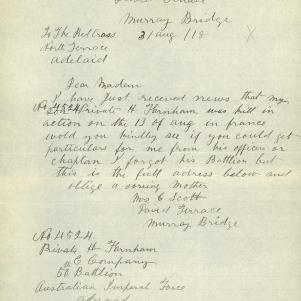 Murray Bridge
To The Red Cross 31/aug/18
North Terrace
Adelaid
Dear Madam
I have just received news that my
No 4524 Son Private H. Farnham was kill in
action on the 13 of aug in france
wold you kindly see if you could get
particulars for me from his officer or
chaplan I forgot his Battlion but
this is the full adress below and
oblige a sorring Mother
Mrs E Scott
David Terrace
Murray Bridge
No 4524
Private H Farnham
C Company
50 Battlion
Australian Imperal Force
abroad